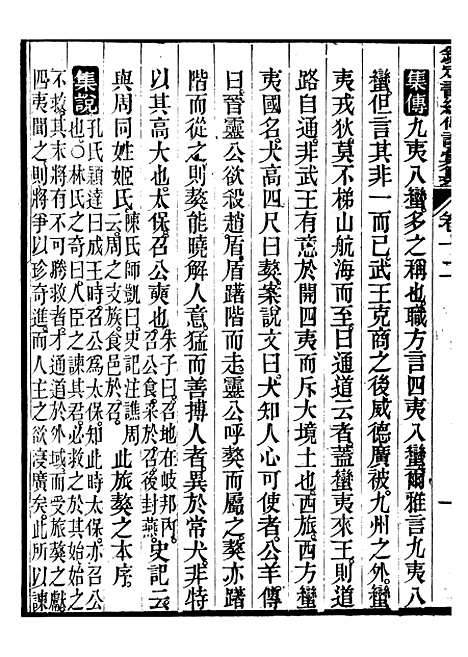 欽定書經傳說彙纂　卷十二
集傳九夷八蠻多之稱也職方言四夷八蠻爾雅言九夷八
蠻但言其非一而已武王克商之後威德廣被九州之外蠻
夷戎狄莫不梯山航海而至曰通道云者蓋蠻夷來王則道
路自通非武王有意於開四夷而斥大境土也西旅西方蠻
夷國名犬高四尺曰獒案說文曰犬知人心可使者公羊傳
曰晉靈公欲殺趙盾盾躇階而走靈公呼獒而屬之獒亦躇
階而從之則獒能曉解人意猛而善搏人者異於常犬非特
以其高大也太保召公奭也朱子曰召地在岐邦內召公食釆於召後封燕史記云
與周同姓姬氏陳氏師凱曰史記注譙周云周之支族食邑於召此旅獒之本序
集說孔氏穎達曰成王時召公為太保知此時太保亦召公
也○林氏之奇曰人臣之諫其君必救之於其始始之
不救其末將有不可勝救者才通道於外域而受旅獒之獻
四夷聞之則將爭以珍奇進而人主之欲寖廣矣此所以諫